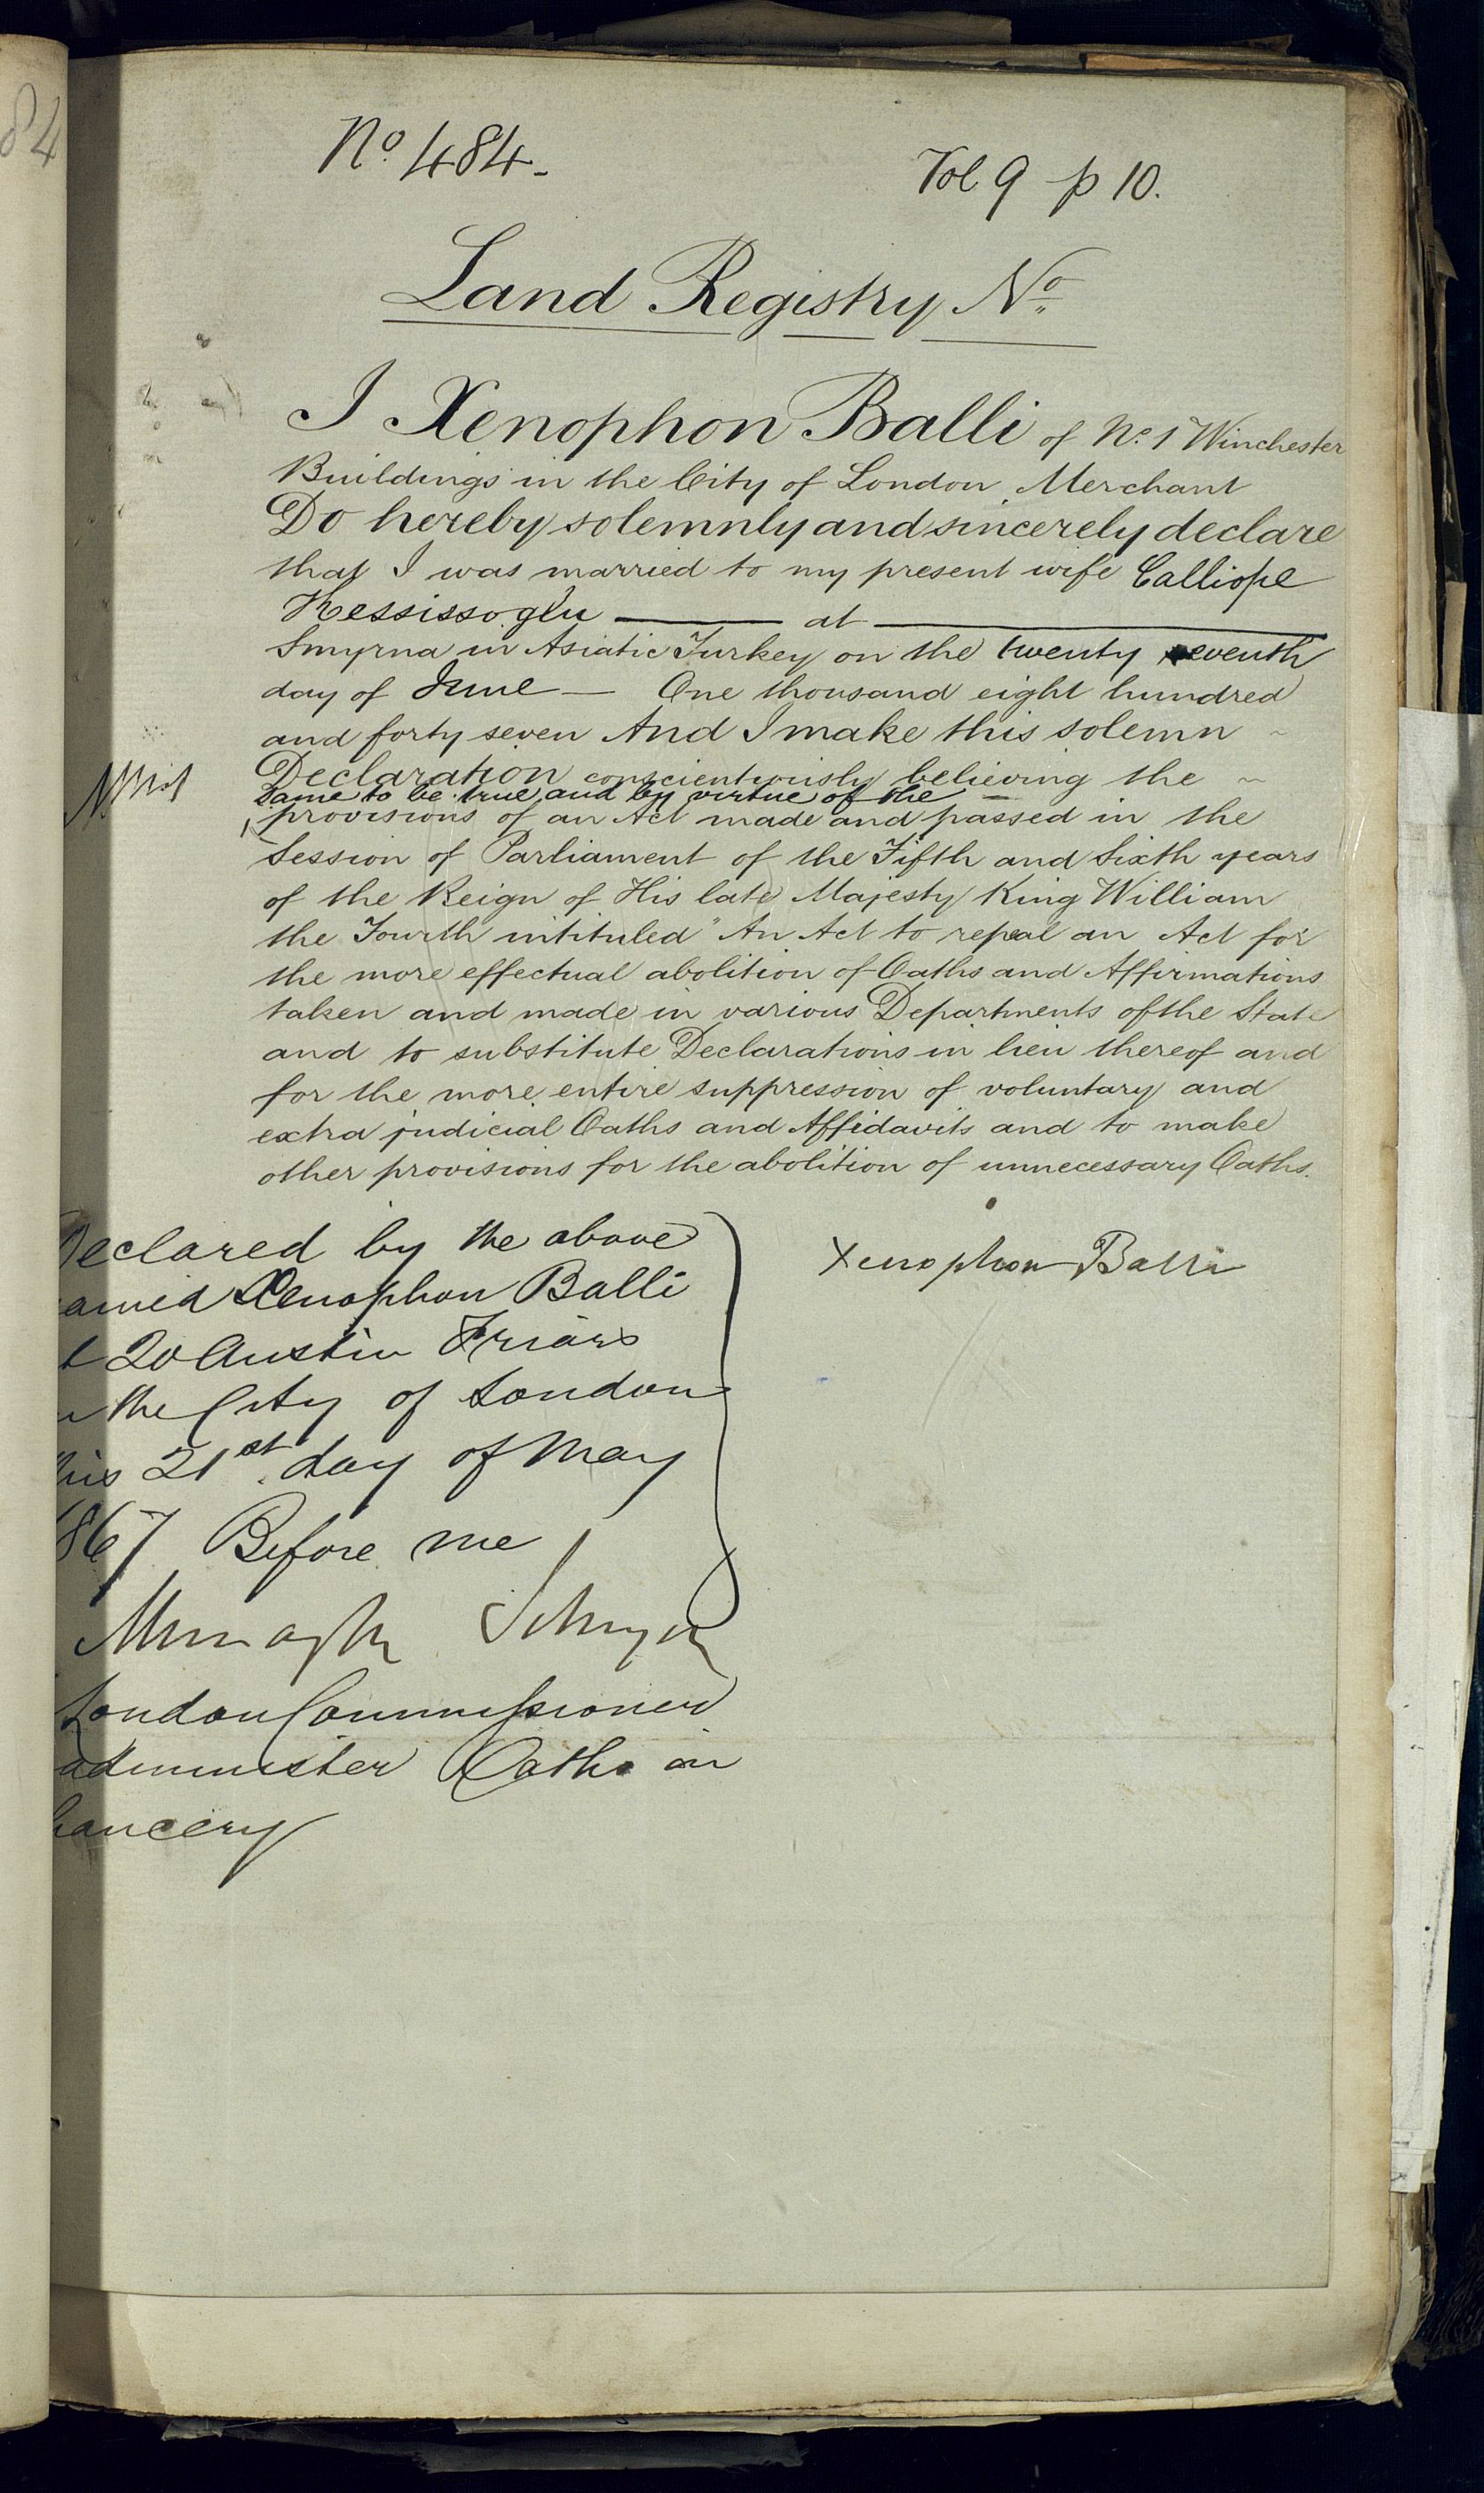 84
No. 484.
Vol 9 p 10.
Land Registry No.
I Xenophon Balli of No. 1 Winchester
Buildings in the City of London Merchant
Do hereby solemnly and sincerely declare
that I was married to my present wife Calliope
Kessissoglu at
Smyrna in Asiatic Turkey on the twenty seventh
day of June — One thousand eight hundred
and forty seven And I make this solemn
Declaration conscientiously believing the
same to be true and by virtue of the
provisions of an Act made and passed in the
Session of Parliament of the Fifth and Sixth years
of the Reign of His late Majesty King William
the Fourth intituled "An Act to repeal an Act for
the more effectual abolition of Oaths and Affirmations
taken and made in various Departments of the State
and to substitute Declarations in lieu thereof and
for the more entire suppression of voluntary and
extra judicial Oaths and Affidavits and to make
other provisions for the abolition of unnecessary Oaths.
Declared by the above
amed Xenophon Balli
t 20 Austin Friars
n the City of London
this 21st day of May
1867 Before me
London Commissioner
administer Oaths in
hancery
Xenophon Balli